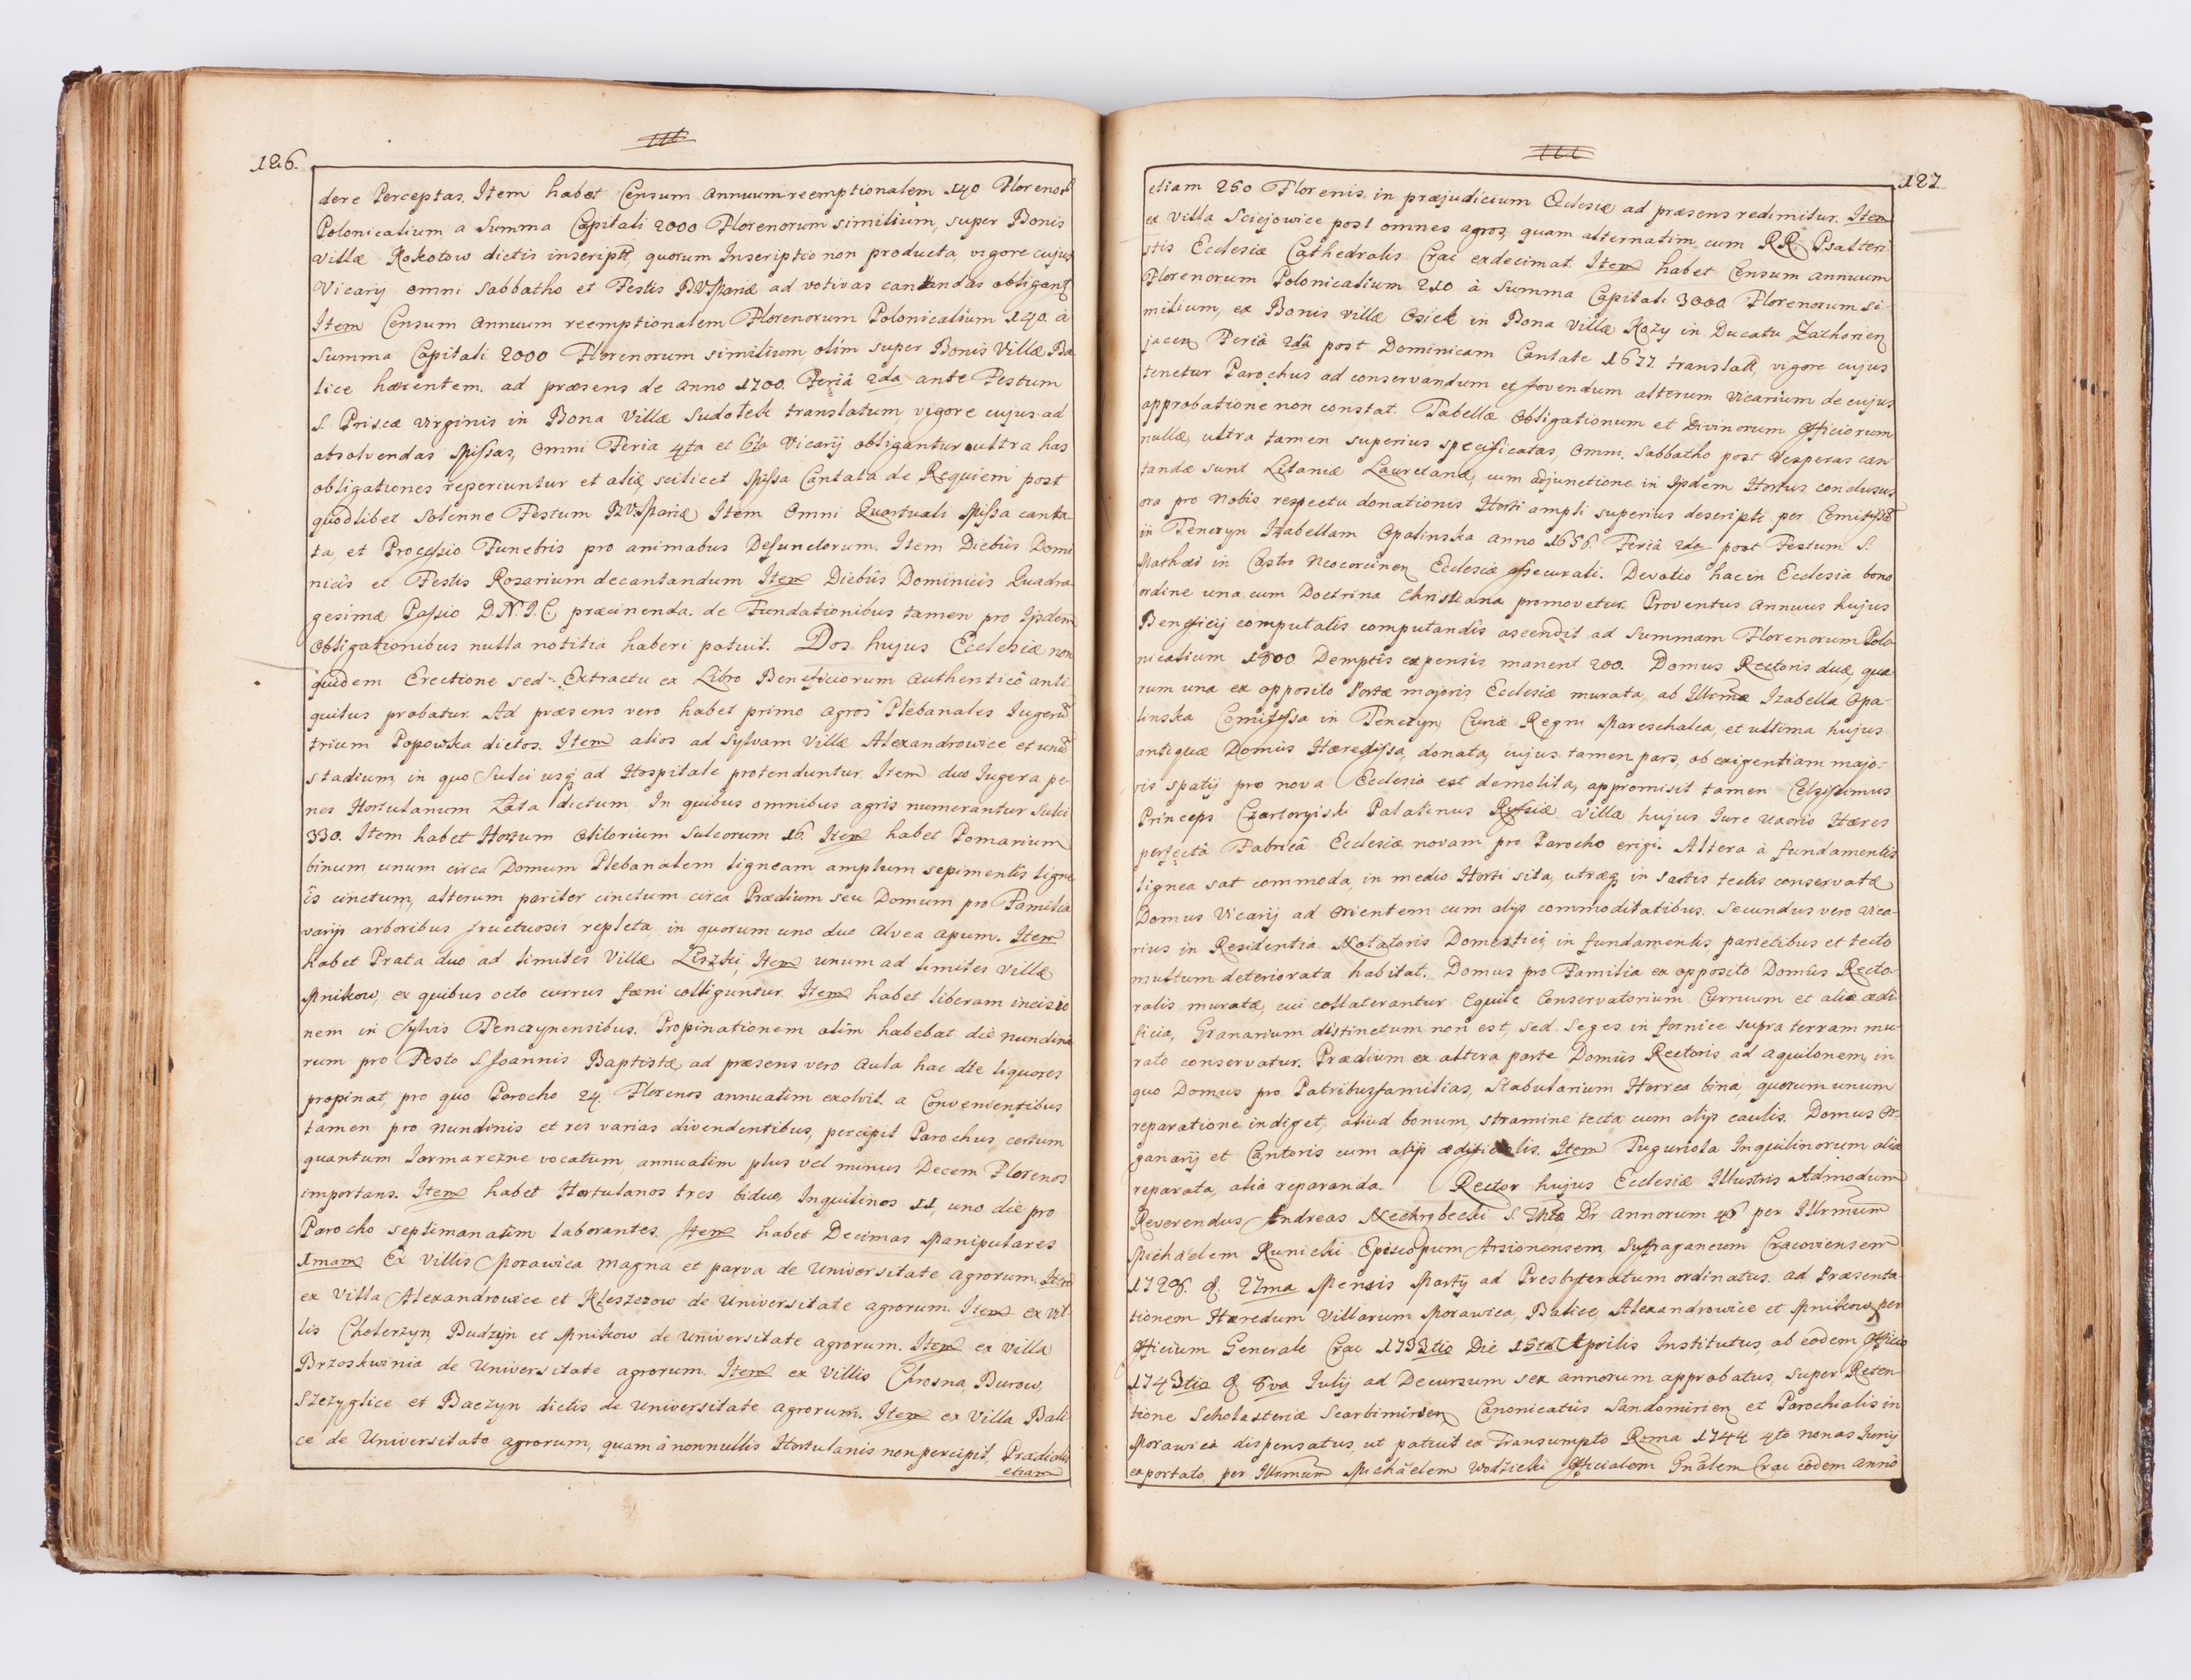 126.
dere Perceptas. Item habet Censum annuum reemptionalem 140 Florenor
Polonicalium a Summa Capitali 2000 Florenorum similium, super Bonis
Villæ Kokotow dictis inscript, quorum Inscriptio non producta, vigore cujus
Vicarij omni Sabbatho et Festis BVMariæ ad votivas cantandas obligant
Item Censum annuum reemptionalem Florenorum Polonicalium 140 à
Summa Capitali 2000 Florenorum similium olim super Bonis Villæ Ba
lice hærentem. ad præsens de anno 1700 Feriâ 2da ante Festum
S. Priscæ Virginis in Bona Villæ Sudołek translatum, vigore cujus ad
absolvendas Missas, omni Feria 4ta et 6ta Vicarij obligantur ultra has
obligationes reperiuntur et aliæ, scilicet Missa Cantata de Requiem post
quodlibet Solenne Festum BVMariæ Item Omni Quartuali Missa canta
ta, et Processio Funebris pro animabus Defunctorum. Item Diebus Domi
nicis et Festis Rosarium decantandum Item Diebûs Dominicis Quadra
gesimæ Passio D.N.I.C. præcinenda. de Fundationibus tamen pro Ijsdem
Obligationibus nulla notitia haberi potuit. Dos hujus Ecclesiæ non
quidem Erectione sed Extractu ex Libro Beneficiorum authenticô anti
quitus probatur. Ad præsens vero habet primo agros Plebanales Iugerũ
trium Popowska dictos. Item alios ad Sylvam Villæ Alexandrowice et unũ
stadium, in quo Sulci usq ad Hospitale protenduntur. Item duo Iugera pe
nes Hortulanum Zata dictum In quibus omnibus agris numerantur Sulci
330. Item habet Hortum Olitorium Sulcorum 16. Item habet Pomarium
binum unum circa Domum Plebanalem ligneam amplum sepimentis ligne
is cinctum, alterum pariter cinctum circa Prædium seu Domum pro Familia
varijs arboribus fructuosis repleta, in quorum uno duo alvea apum. Item
habet Prata duo ad limites Villæ Liszki, Item unum ad limites Villæ
Mnikow, ex quibus octo currus fæni colliguntur. Item habet liberam incisio
nem in Sylvis Tenczynensibus. Propinationem olim habebat die nundina
rum pro Festo S. Joannis Baptistæ, ad præsens vero Aula hac die liquores
propinat, pro quo Parocho 24. Florenos annuatim exolvit. a Convenientibus
tamen pro nundinis et res varias divendentibus, percipit Parochus, certum
quantum Jarmarczne vocatum, annuatim plus vel minus Decem Florenos
importans. Item habet Hortulanos tres biduo, Inquilinos 11, uno die pro
Parocho septimanatim laborantes. Item habet Decimas Manipulares
1mam Ex Villis Morawica magna et parva de Universitate agrorum. Item
ex Villa Alexandrowice et Kleszczow de Universitate agrorum. Item ex Vil
lis Cholerzyn, Budzyn et Mnikow de Universitate agrorum. Item ex Villa
Brzoskwinia de Universitate agrorum. Item ex Villis Chrosna, Burow,
Szczyglice et Baczyn dictis de Universitate agrorum. Item ex Villa Bali
ce de Universitate agrorum, quam à nonnullis Hortulanis non percipit, Prædialis
etiam
127
etiam 250 Florenis in præjudicium Ecclesiæ ad præsens redimitur. Item
ex Villa Sciejowice post omnes agros, quam alternatim cum RR. Psalteri
stis Ecclesiæ Cathedralis Crac exdecimat. Item habet Censum annuum
Florenorum Polonicalium 210 à Summa Capitali 3000 Florenorum Si-
milium, ex Bonis Villæ Osiek in Bona Villæ Kozy in Ducatu Zathorien
jacen Feriâ 2dâ post Dominicam Cantate 1677 translatt, vigore cujus
tenetur Parochus ad conservandum et fovendum alterum Vicarium de cujus
approbatione non constat. Tabellæ Obligationum et Divinorum Officiorum
nullæ, ultra tamen superius specificatas, Omni Sabbatho post Vesperas can
tandæ sunt Litaniæ Lauretanæ, cum adjunctione in Ipsdem Hortus conclusus
ora pro nobis respectu donationis Horti ampli superius descripti per Comitissã
in Tenczyn Izabellam Opalinska anno 1656 Feriâ 2da post Festum S.
Mathæi in Castro Neocorcinen Ecclesiæ assecurati. Devotio hac in Ecclesia bono
ordine una cum Doctrina Christiana promovetur. Proventus annuus hujus
Beneficij computatis computandis ascendit ad Summam Florenorum Polo
nicalium 1800 Demptis expensis manent 200. Domus Rectoris duæ, qua
rum una ex opposito Portæ majoris Ecclesiæ murata, ab Illrma Izabella Opa-
linska Comitissa in Tenczyn Curiæ Regni Mareschalca, et ultima hujus
antiquæ Domûs Hæredissa, donata, cujus tamen pars, ob exigentiam majo-
ris spatij pro nova Ecclesia est demolita, appromisit tamen Celsissimus
Princeps Czartoryiski Palatinus Russiæ Villæ hujus Iure Uxoris Hæres
perfectâ Fabricâ Ecclesiæ novam pro Parocho erigi. Altera à fundamentis
lignea sat commoda, in medio Horti sita, utræq in sartis tectis conservatæ
Domus Vicarij ad Orientem cum alijs commoditatibus. Secundus vero Vica-
rius in Residentia Notatoris Domestici, in fundamentis, parietibus et tecto
multum deteriorata habitat. Domus pro Familia ex opposito Domûs Recto-
ralis muratæ, cui collaterantur Equile Conservatorium Curruum et alia ædi
ficia, Granarium distinctum non est, sed Seges in fornice supra terram mu-
rato conservatur. Prædium ex altera parte Domûs Rectoris ad aquilonem, in
quo Domus pro Patribusfamilias, Stabularium Horrea bina, quorum unum
reparatione indiget, aliud bonum, stramine tecta cum alijs caulis. Domus Or-
ganarij et Cantoris cum alijs ædificiolis. Item Tuguriola Inquilinorum alia
reparata, alia reparanda. Rector hujus Ecclesiæ Illustris Admodum
Reverendus Andreas S. Thæ Dr annorum 46 per Illrmum
Michaëlem Kunicki Episcopum Arsionensem Suffraganeum Cracoviensem
1728. d. 27ma Mensis Martij ad Presbyteratum ordinatus. ad Præsenta-
tionem Hæredum Villarum Morawica, Balice, Alexandrowice et Mnikow per
Officium Generale Crac 1733tio Die 15ta Aprilis Institutus, ab eodem Officio
1743tio d. 8va Iulij ad Decursum sex annorum approbatus, super Reten-
tione Scholasteriæ Scarbimirien Canonicatûs Sandomirien et Parochialis in
Morawica dispensatus, ut patuit ex Transumpto Roma 1744 4to nonas Iunij
exportato per Illrmum Michäelem Wodzicki Officialem Gnalem Crac eodem anno